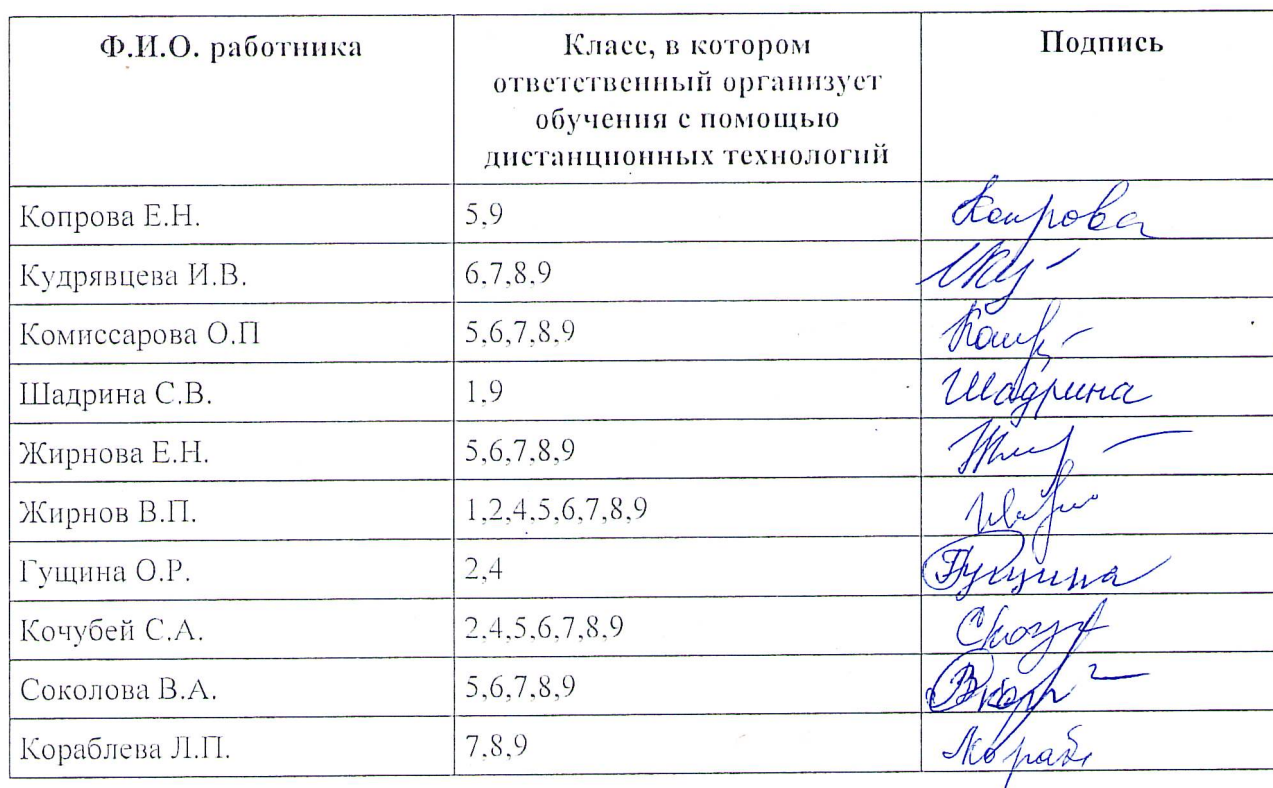 Ф.И.О. работника
Класс, в котором
ответственный организует
обучения с помощью
дистанционных технологий
Подпись
Копрова Е.Н. 5,9 Копрова
Кудрявцева И.В. 6,7,8,9
Комиссарова О.П 5,6,7,8,9
Шадрина С.В. 1,9 Шадрина
Жирнова Е.Н. 5,6,7,8,9
Жирнов В.П. 1,2,4,5,6,7,8,9
Гущина О.Р. 2,4 Гущина
Кочубей С.А. 2,4,5,6,7,8,9
Соколова В.А. 5,6,7,8,9
Кораблева Л.П. 7,8,9